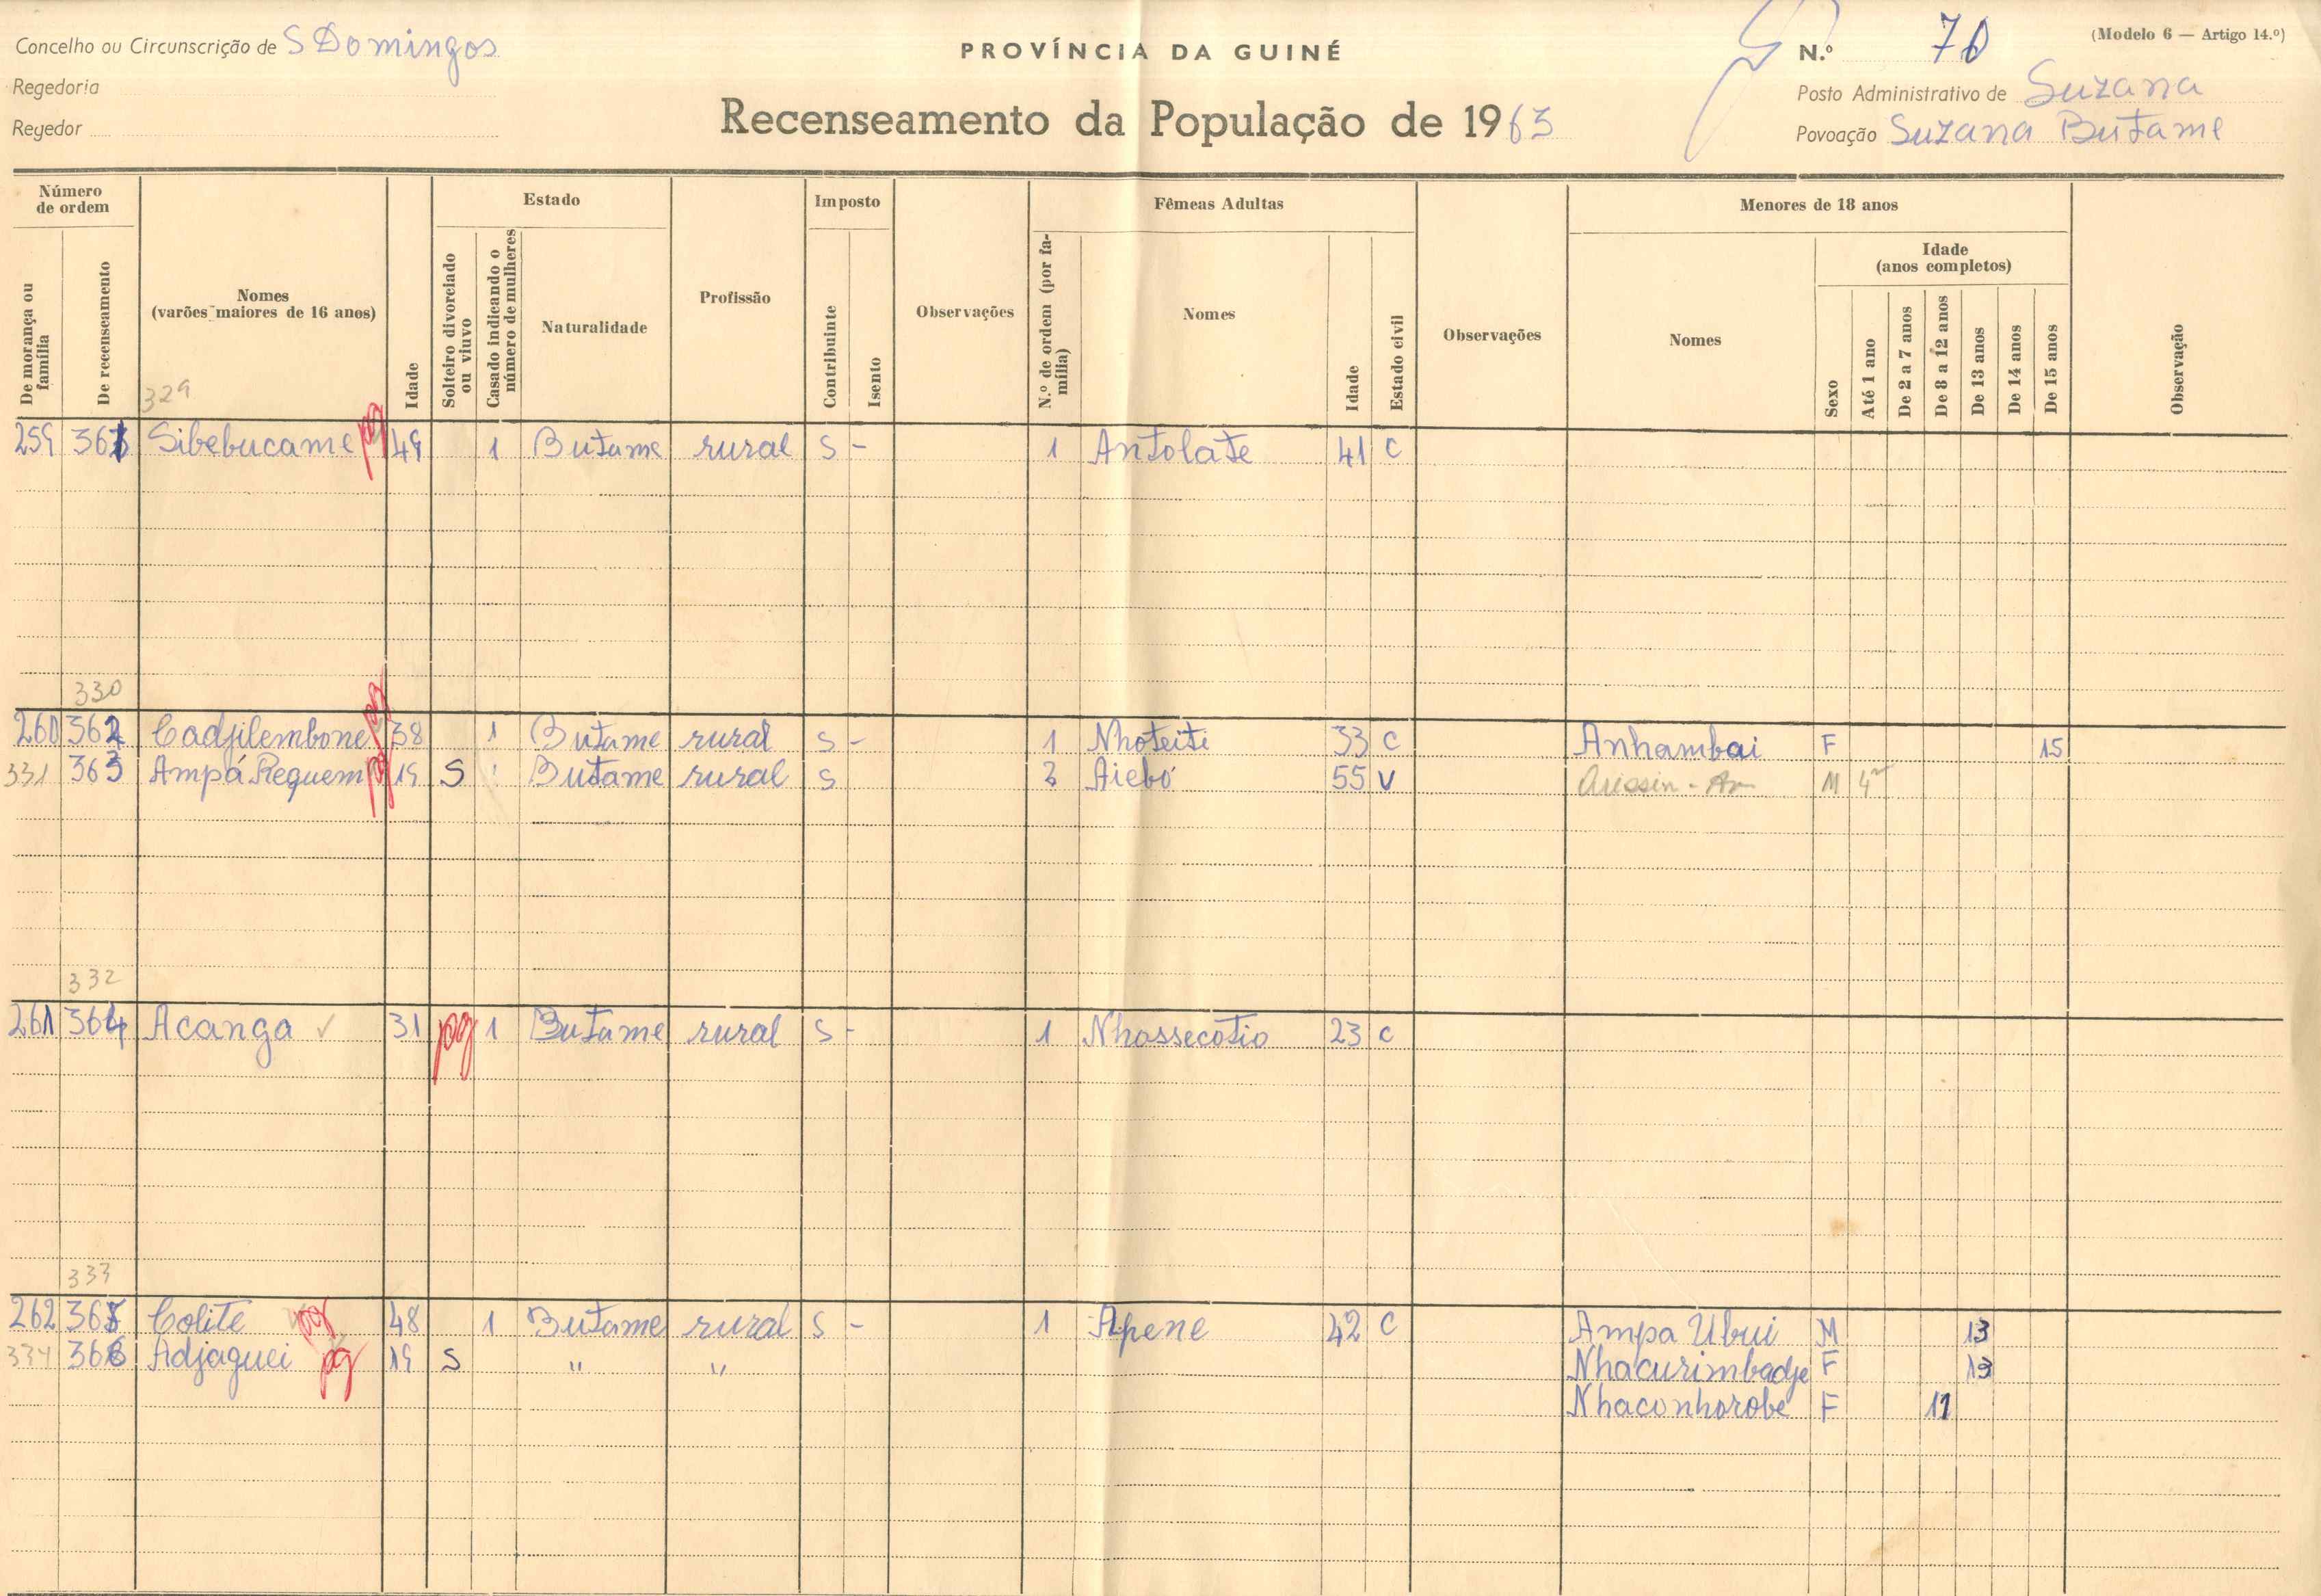 Concelho ou Circunscrição de S Domingos
PROVÍNCIA DA GUINÉ
N.º 70
(Modelo 6 — Artigo 14.º)
Regedoria
Posto Administrativo de Suzana
Regedor
Recenseamento da População de 1963
Povoação Suzana Butame
Número de ordem
Estado
Imposto
Fêmeas Adultas
Menores de 18 anos
De morança ou família
De recenseamento
Nomes (varões maiores de 16 anos)
Idade
Solteiro divorciado ou viuvo
Casado indicando o número de mulheres
Naturalidade
Profissão
Contribuinte
Isento
Observações
N.º de ordem (por família)
Nomes
Idade
Estado civil
Observações
Nomes
Sexo
Idade (anos completos)
Até 1 ano
De 2 a 7 anos
De 8 a 12 anos
De 13 anos
De 14 anos
De 15 anos
Observação
329
259 361 Sibebucame pg 49 1 Butame rural S - 1 Antolate 41 C
330
260 362 Cadjilembone pg 38 1 Butame rural S - 1 Nhoteiti 33 C Anhambai F 15
331 363 Ampá Reguem pg 19 S Butame rural S 2 Aiebó 55 V M
332
261 364 Acanga ✓ 31 pg 1 Butame rural S - 1 Nhassecotio 23 C
333
262 365 Colite pg 48 1 Butame rural S - 1 Apene 42 C Ampa Ubui M 13
334 366 Adjaguei pg 19 S " " Nhacurimbadje F 13
Nhaconhorobe F 11